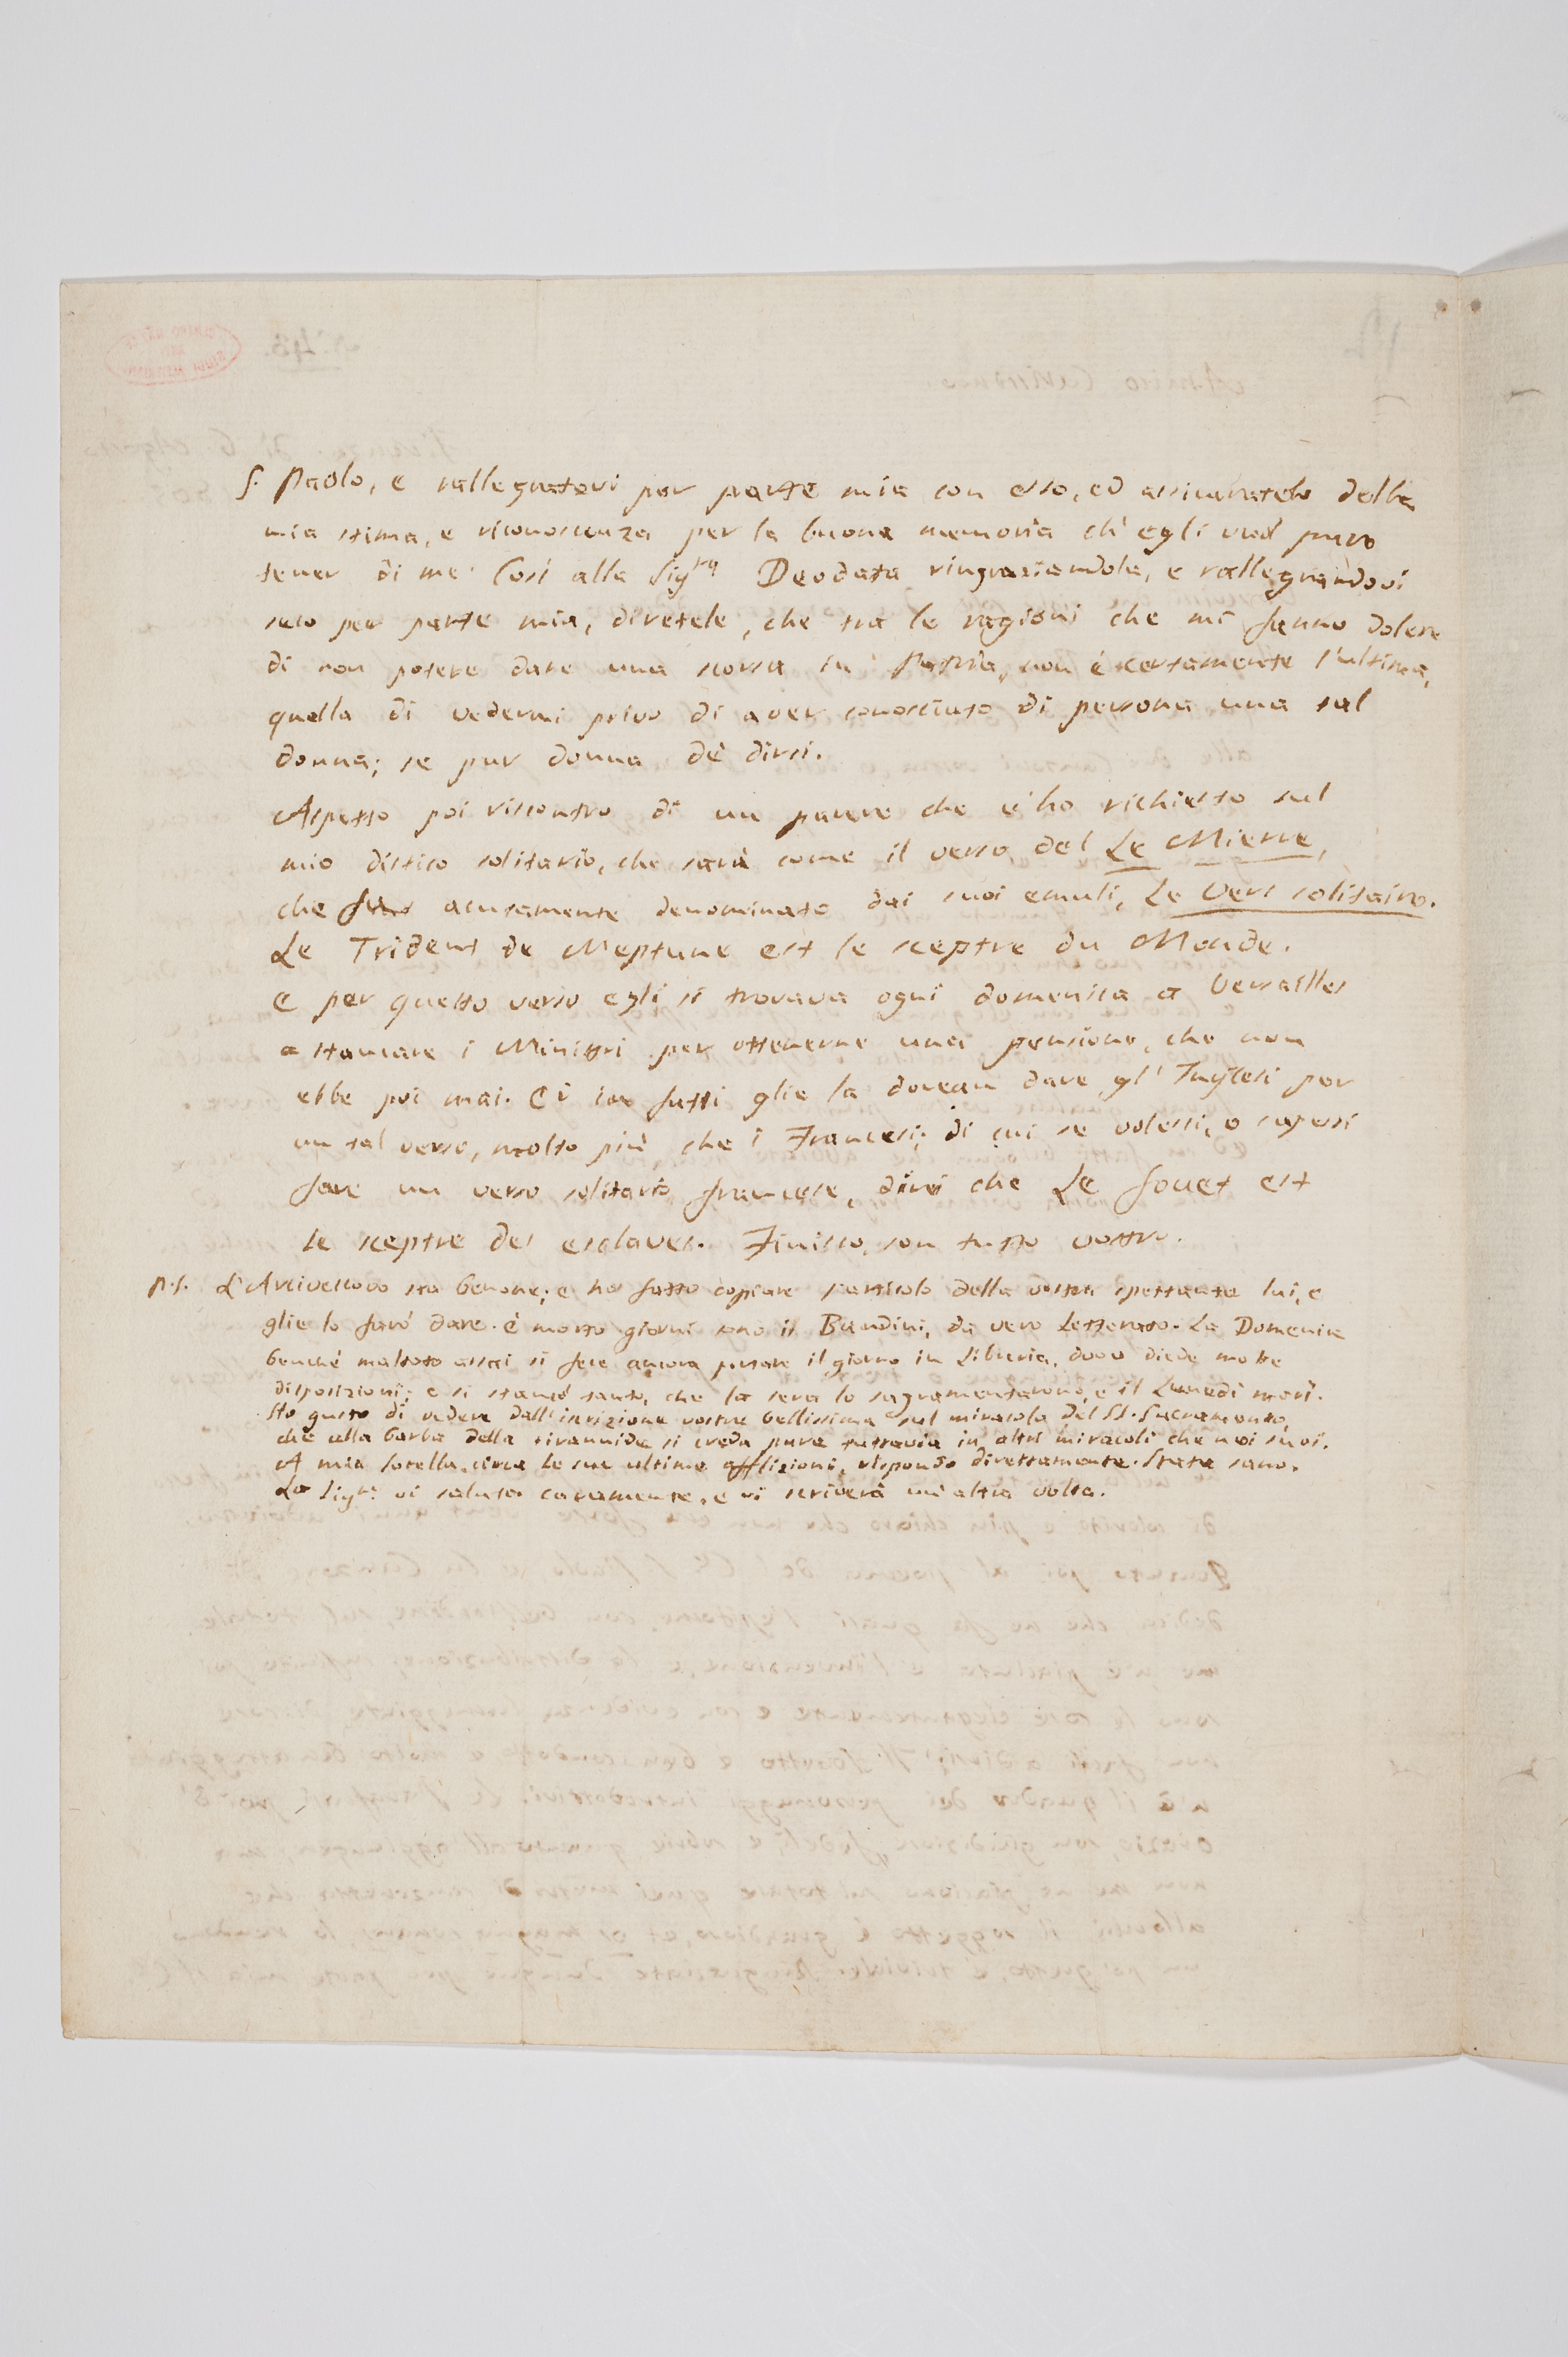 S. Paolo, e rallegratevi per parte mia con esso, ed assicuratelo della
mia stima, e riconoscenza per la buona memoria ch'egli vuol pure
tener di me. Così alla Sig.ra Deodata ringraziandola, e rallegrandovi
seco per parte mia, diretele, che tra le ragioni che mi fanno dolere
di non potere dare una scorsa in Patria, non è certamente l'ultima,
quella di vedermi privo di aver conosciuto di persona una tal
donna; se pur donna dè dirsi.
Aspetto poi riscontro di un parere che v'ho richiesto sul
mio distico solitario, che sarà come il verso del Le Mierre,
che fu acutamente denominato dai suoi emuli, Le Vers solitaire.
Le Trident de Neptune est le sceptre du Monde.
E per questo verso egli si trovava ogni domenica a Versailles
a stancare i Ministri per ottenerne una pensione, che non
ebbe poi mai. Ed in fatti glie la dovean dare gl'Inglesi per
un tal verso, molto più che i Francesi; di cui se volessi, o sapessi
fare un verso solitario francese, direi che Le fouet est
le sceptre des esclaves. Finisco, son tutto vostro.
P.S. L'Arcivescovo sta benone; e ho fatto copiare l'articolo della vostra spettante lui, e
glie lo farò dare. è morto giorni sono il Bandini, da vero Letterato. La Domenica
benchè malato assai si fece ancora portare il giorno in Libreria, dove diede molte
disposizioni; e si stancò tanto, che la sera lo sagramentarono, e il Lunedì morì.
Ho gusto di vedere dall'iscrizione vostra bellissima sul miracolo del SS. Sacramento,
che alla barba della tirannide si creda pure tuttavia in altri miracoli che nei suoi.
A mia sorella, circa le sue ultime afflizioni, rispondo direttamente. State sano.
La Sig.ra vi saluta caramente, e vi scriverà un'altra volta.